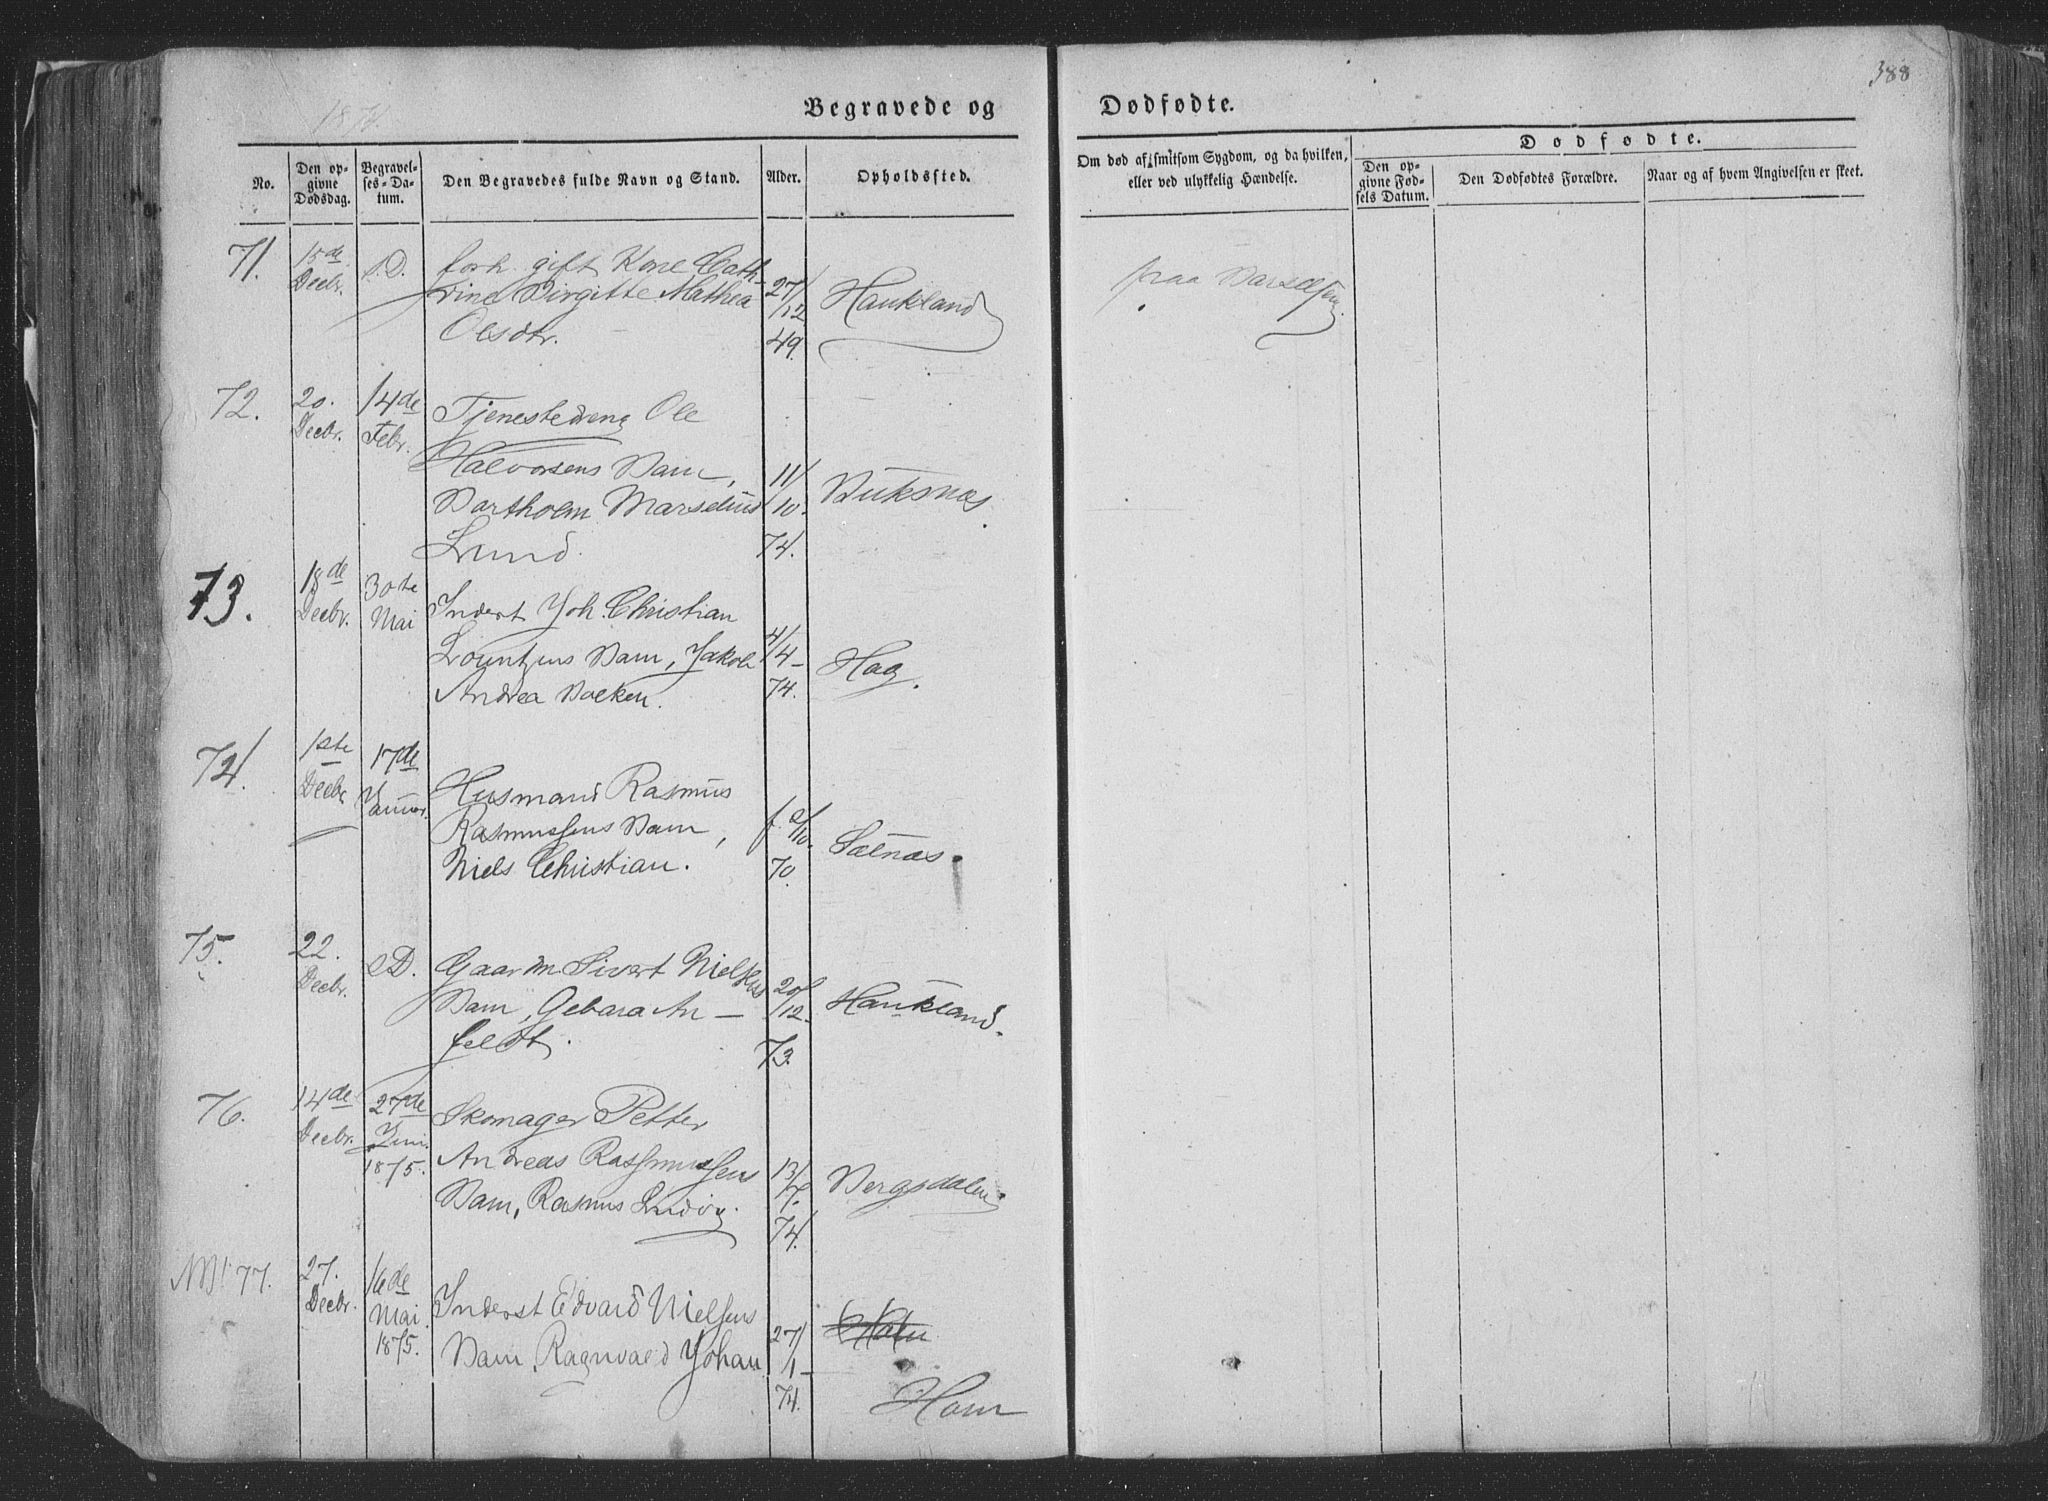 388
1874.
Begravede og Dødfødte.
No.
Den op-
givne
Dødsdag.
Begravel-
ses-Da-
tum.
Den Begravedes fulde Navn og Stand.
Alder.
Opholdssted.
Om død af smitsom Sygdom, og da hvilken,
eller ved ulykkelig Hændelse.
Dødfødte.
Den op-
givne Fød-
sels Datum.
Den Dødfødtes Forældre.
Naar og af hvem Angivelsen er skeet.
71.
15de
Decbr.
S.D.
forh. gift Kone Cath-
rine Birgitte Mathea
Olsdtr.
27/
/12
49.
Haukland
paa Barselseng
72.
20.
Decbr.
14de
Febr.
Tjenestedreng Ole
Halvorsens Barn,
Bartholm Marselius
Lund.
11/
/10.
74.
Buksnæs
73.
18de
Decbr.
30te
Mai
Inderst Joh. Christian
Barn, Jakob
Andrea
4/
/4-
74.
Hag.
74.
1ste
Decbr.
17de
Januar.
Husmand Rasmus
Rasmussens Barn,
Niels Christian.
f.
/10.
70.
Sælnæs.
75.
22.
Decbr.
S.D.
Gaardm Sivert Nielsens
Barn, Gebara An-
feldt.
20/
/12.
73.
Haukland.
76.
14de
Decbr.
27de
Juni.
1875.
Skomager Petter
Andreas Rasmussens
Barn, Rasmus Ludvig.
13/
/7.
74.
Bergsdalen.
No. 77.
27.
Decbr.
16de
Mai
1875.
Inderst Edvard Nielsens
Barn, Ragnvald Johan
27/
/1-
74.
Holm